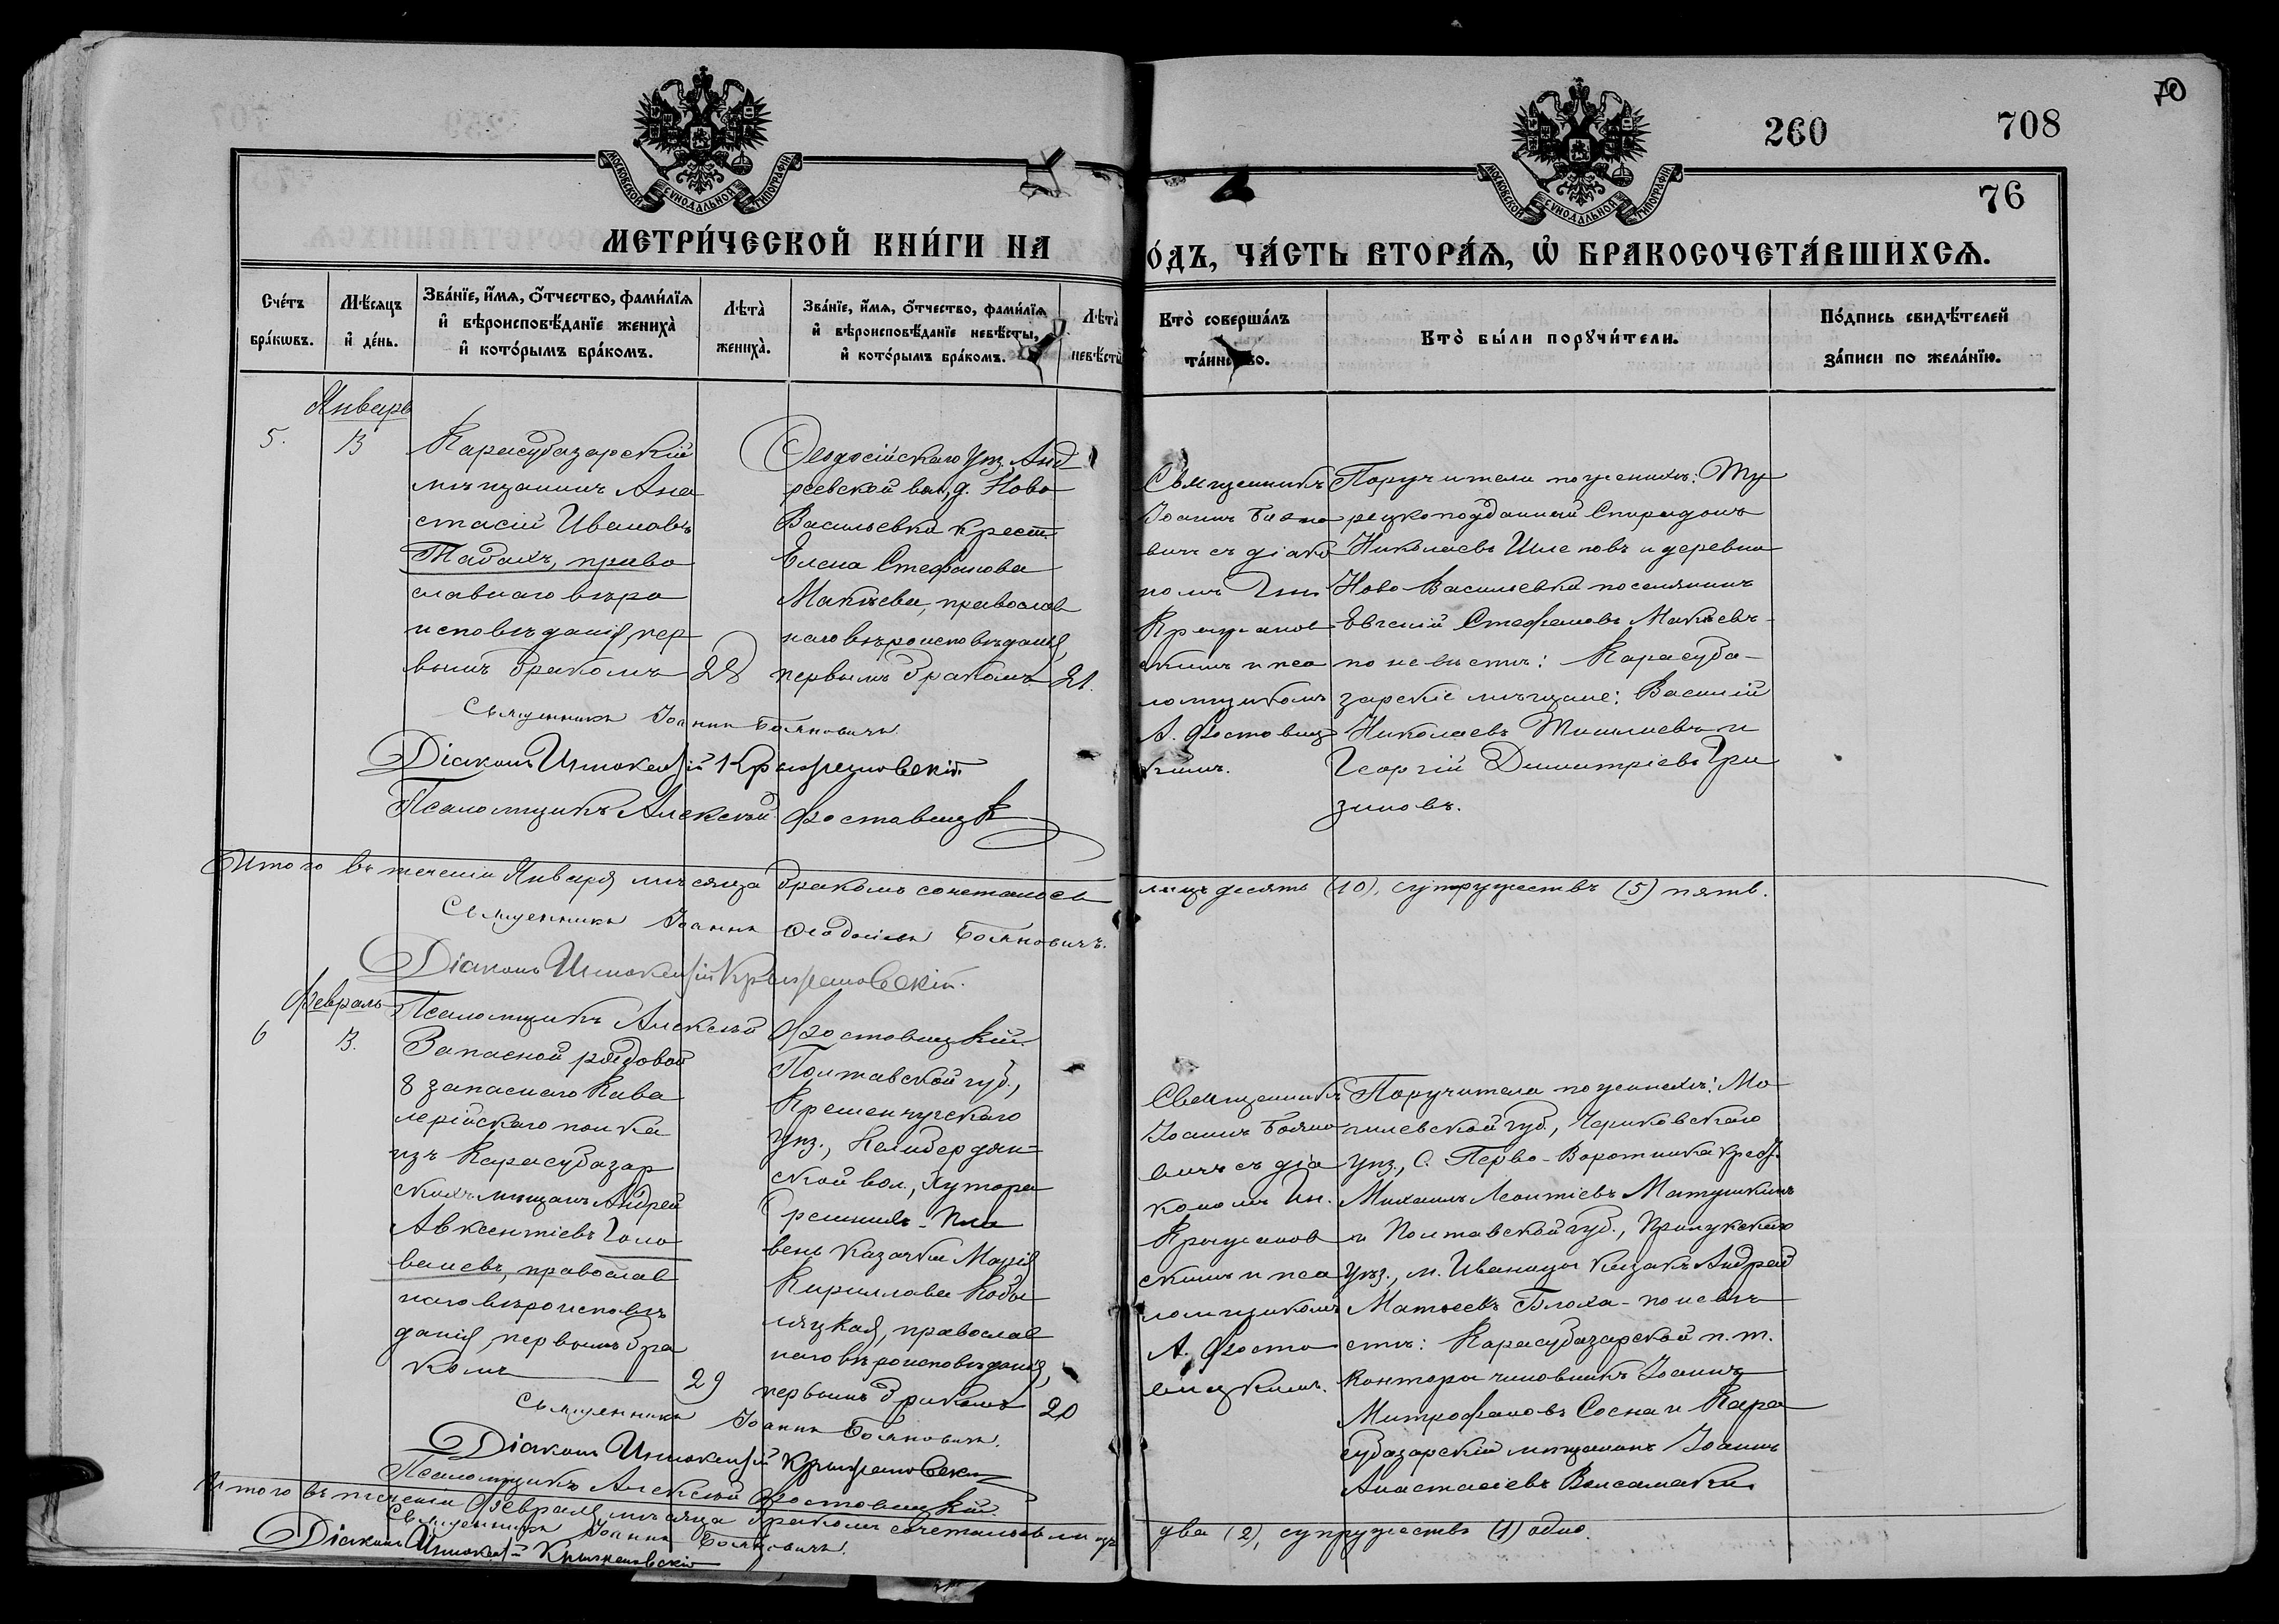 70
260
708
76
МОСКОВСКОЙ СѴНОДАЛЬНОЙ ТИПОГРАФІИ
МОСКОВСКОЙ СѴНОДАЛЬНОЙ ТИПОГРАФІИ
МЕТРИ́ЧЕСКОЙ КНИ́ГИ НА
О́ДЪ, ЧА́СТЬ ВТОРА́Ѧ, Ѽ БРАКОСОЧЕТА́ВШИХСѦ.
Сче́тъ бра́кѡвъ.
Мѣ́сяцъ и҆ де́нь.
Зва́нїе, и҆́мѧ, ѻ҆́тчество, фами́лїѧ
и҆ вѣроисповѣ́данїе жениха̀
и҆ кото́рымъ бра́комъ.
Лѣта̀ жениха̀.
Зва́нїе, и҆́мѧ, ѻ҆́тчество, фами́лїѧ
и҆ вѣроисповѣ́данїе невѣ́сты,
и҆ кото́рымъ бра́комъ.
Лѣта̀
невѣ́сты
Кто̀ соверша́лъ
Кто̀ бы́ли порꙋчи́тели.
По́дпись свидѣ́телей
за́писи по жела́нїю.
Январь
5.
13
Карасубазарскій
мѣщанинъ Ана
стасій Ивановъ
Табахъ, право
славнаго вѣро
исповѣданія, пер
вымъ бракомъ
28
Ѳеодосійскаго уѣз. Анд
реевской вол., д. Ново
Васильевка крест.
Елена Стефанова
Макѣева, православ
наго вѣроисповѣданія,
первымъ бракомъ
21.
Священникъ
Іоаннъ Бояно
вичъ съ діако
номъ Ин.
Крыжанов
скимъ и пса
ломщикомъ
А. Фостовиц
кимъ.
Поручители по женихѣ: Ту
рецкоподданный Спиридонъ
Николаевъ и деревни
Ново-Васильевки поселянинъ
Евгеній Стефановъ Макѣевъ
по невѣстѣ: Карасуба-
зарскіе мѣщане: Василій
Николаевъ и
Георгій Димитріевъ Гри
зиновъ.
Священникъ Іоаннъ Бояновичъ.
Діаконъ Иннокентій Крыжановскій.
Псаломщикъ Алексѣй Фостовицк
Итого въ теченіи Января мѣсяца бракомъ сочеталось
лицъ десять (10), супружествъ (5) пять.
Священникъ Іоаннъ Ѳеодосіевъ Бояновичъ.
Діаконъ Иннокентій Крыжановскій.
Псаломщикъ Алексѣй Фостовицкій.
Февраль
6
13.
Запасной рядовой
8 запаснаго Кава
лерійскаго полка
изъ Карасубазар
скихъ мѣщанъ Андрей
Авксентіевъ Голо
ваневъ, православ
наго вѣроисповѣ
данія, первымъ бра
комъ
29
Полтавской губ.,
Кременчугскаго
уѣз., Келибердян-
ской вол., хутора
вень казачка Марія
Кириллова Кобы
ляцкая, православ
наго вѣроисповѣданія,
первымъ бракомъ
20
Священникъ
Іоаннъ Бояно
вичъ съ діа
кономъ Ин.
Крыжанов
скимъ и пса
ломщикомъ
А. Фосто
вицкимъ.
Поручители по женихѣ: Мо
гилевской губ., Чериковскаго
уѣз., С. Перво-Воротника крест.
Михаилъ Леонтіевъ Матушкинъ
и Полтавской губ., Прилукскаго
уѣз., м. Иваницы казакъ Андрей
Матвеевъ Блоха - по невѣ
стѣ: Карасубазарской п. т.
конторы чиновникъ Іоаннъ
Митрофановъ Сосна и Кара
субазарскій мѣщанинъ Іоаннъ
Анастасіевъ Вальсамаки.
Священникъ Іоаннъ Бояновичъ.
Діаконъ Иннокентій Крыжановскій
Псаломщикъ Алексѣй Фостовицкій.
Итого въ теченіи Февраля мѣсяца бракомъ сочеталось лицъ
два (2), супружество (1) одно.
Священникъ Іоаннъ Бояновичъ.
Діаконъ Иннокентій Крыжановскій